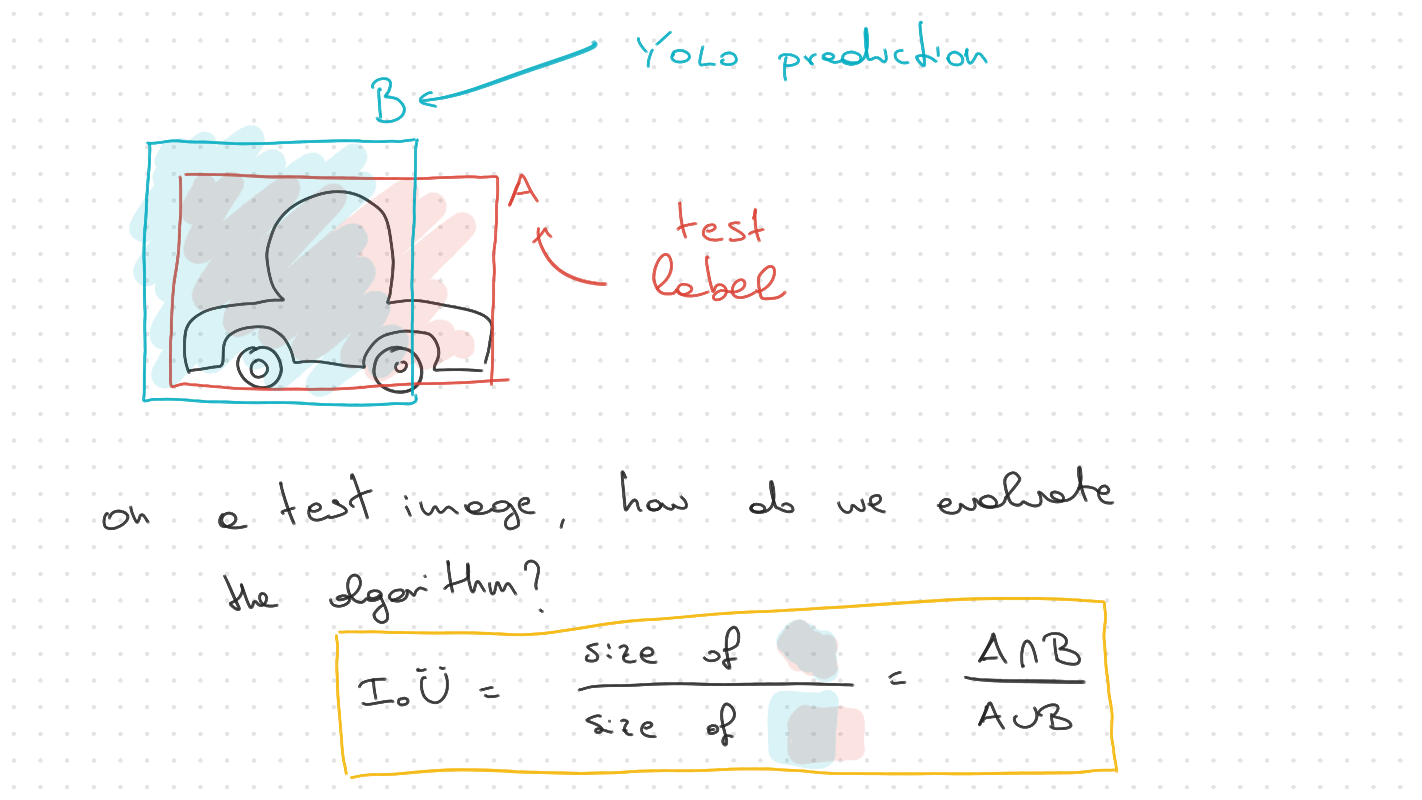 YOLO prediction
B
A
test
label
on a test image, how do we evaluate
the algorithm?
IoÜ = size of / size of = A∩B / A∪B